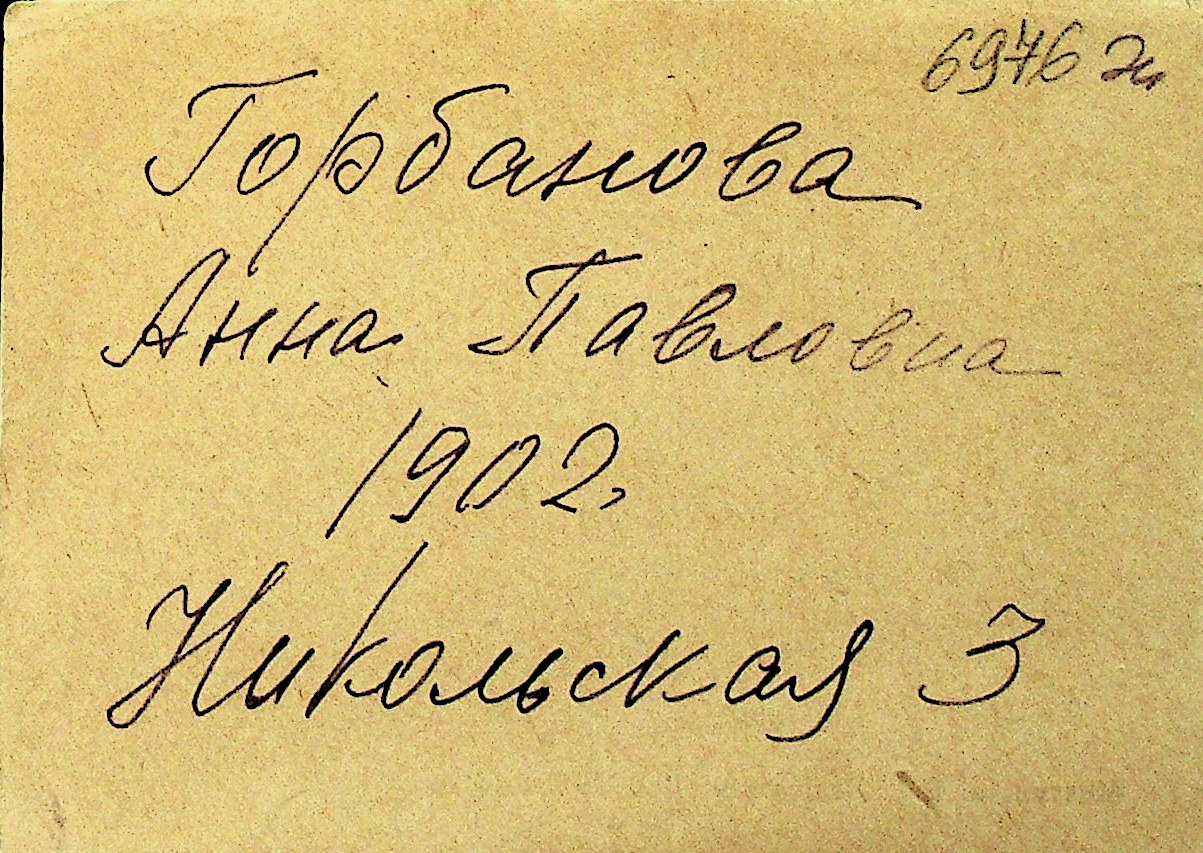 6976
Горбанова
Анна Павловна
1902.
Никольская 3